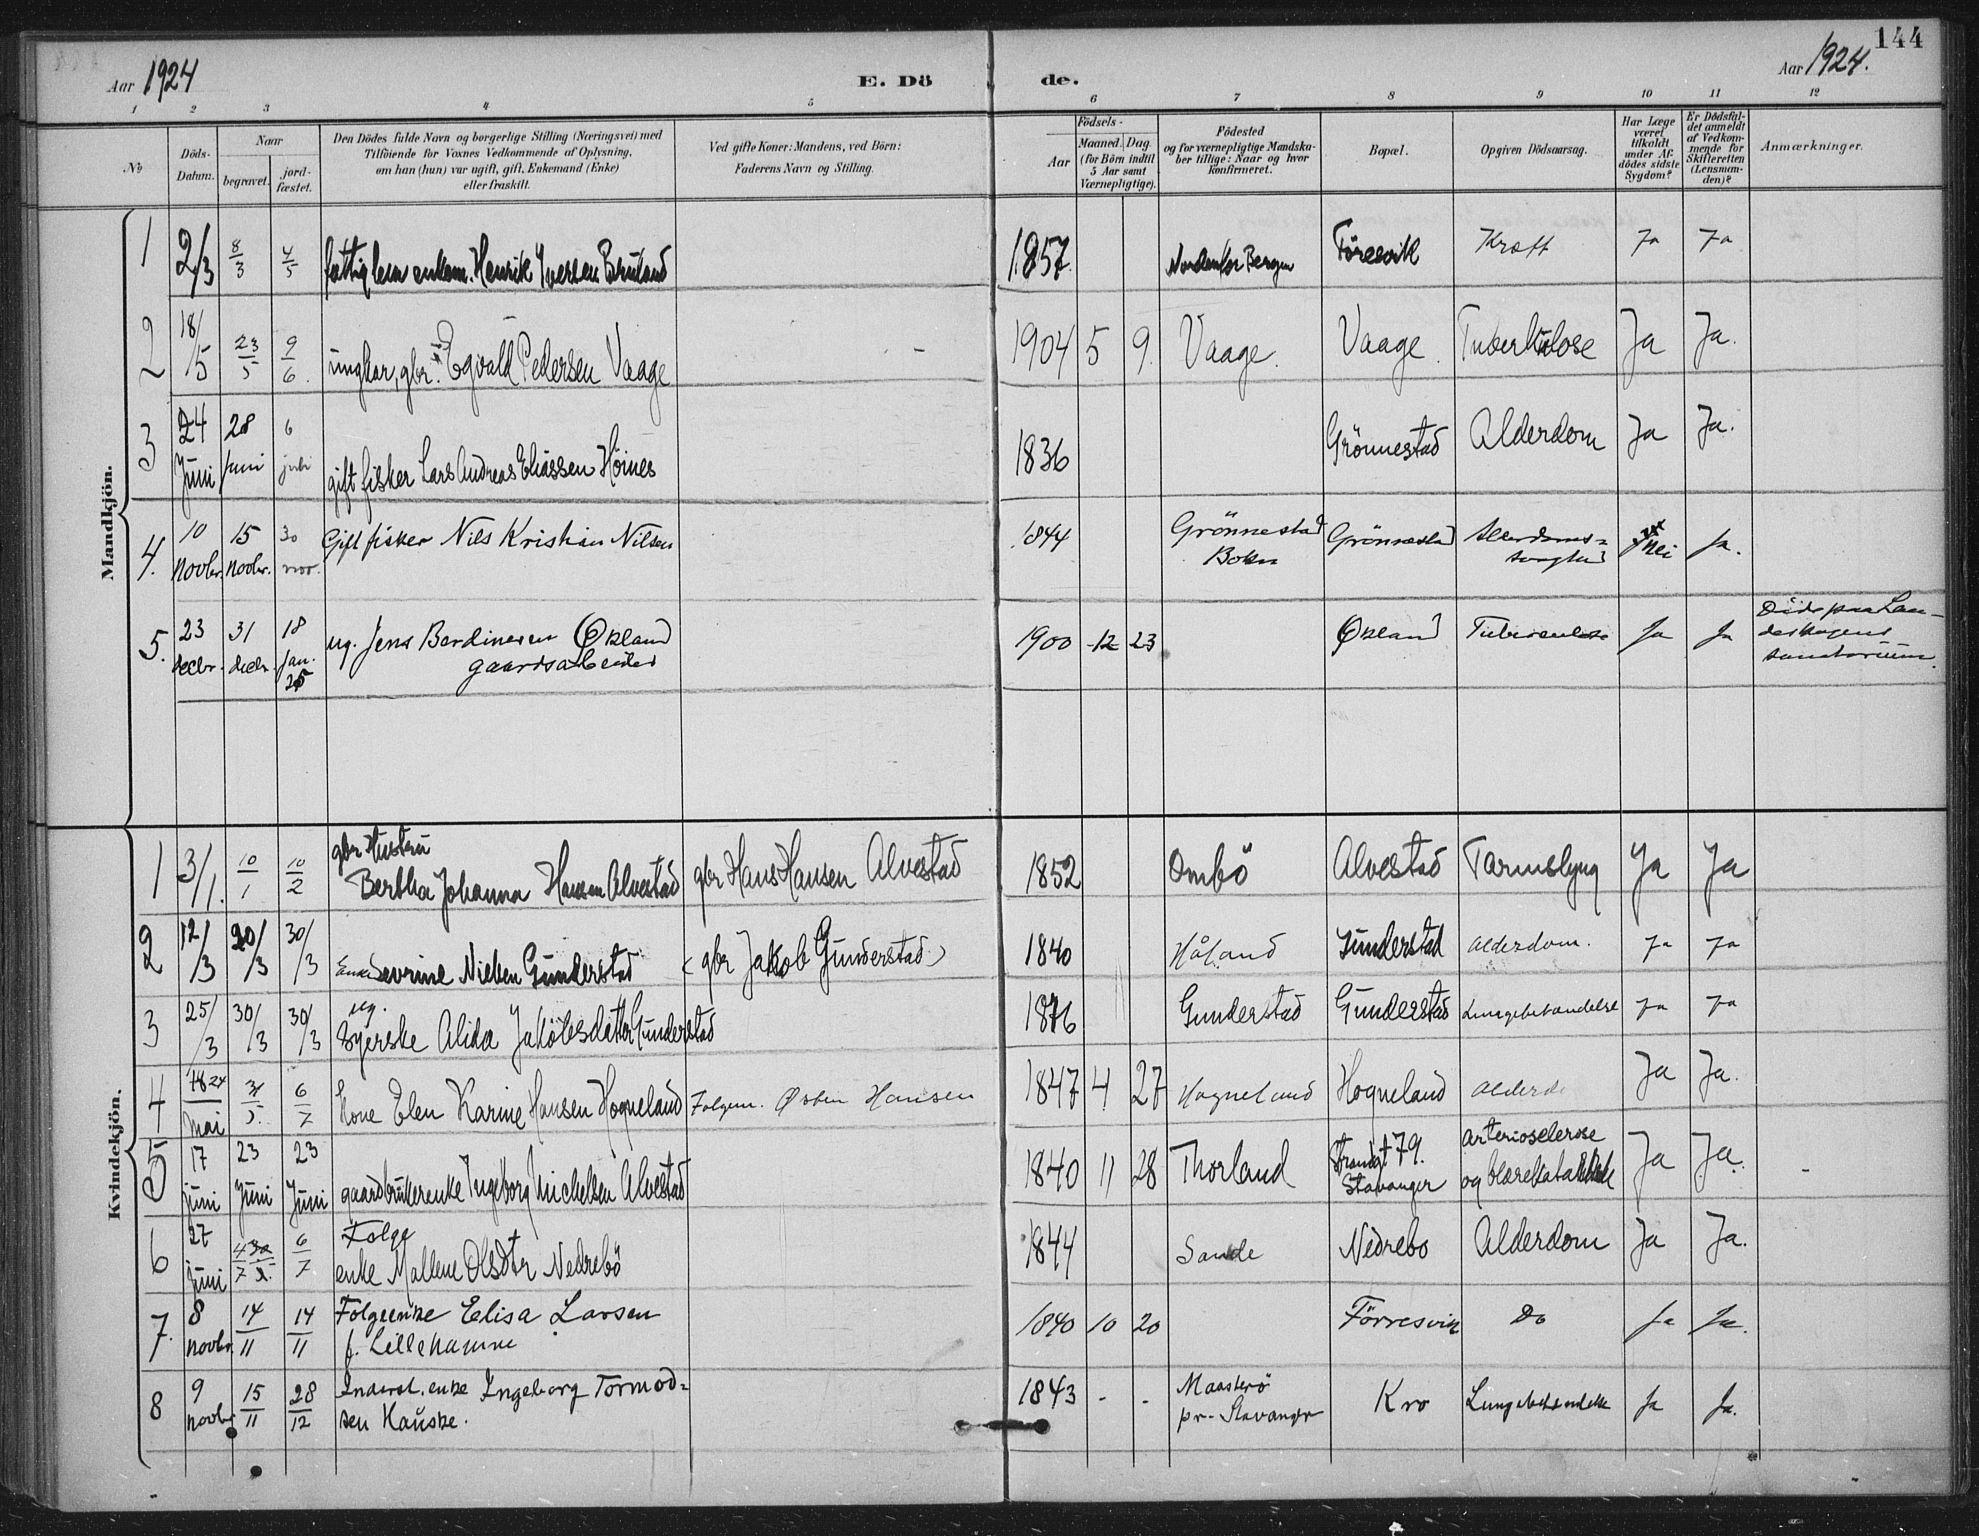 144
Aar 1924
E. Döde.
Aar 1924.
1 2 3 4 5 6 7 8 9 10 11 12
№
Döds-Datum.
Naar
begravet.
jordfæstet.
Den Dödes fulde Navn og borgerlige Stilling (Næringsvei) med
Tilföiende for Voxnes Vedkommende af Oplysning,
om han (hun) var ugift, gift, Enkemand (Enke)
eller fraskilt.
Ved gifte Koner: Mandens, ved Börn:
Faderens Navn og Stilling.
Födsels-
Aar
Maaned. Dag.
(for Börn indtil
5 Aar samt
Værnepligtige).
Födested
og for værnepligtige Mandskaber tillige: Naar og hvor
konfirmeret.
Bopæl.
Opgiven Dödsaarsag.
Har Læge
været
tilkaldt
under Afdödes sidste
Sygdom?
Er Dödsfaldet anmeldt
af Vedkommende for
Skifteretten
(Lensmanden)?
Anmærkninger.
Mandkjön.
1 2/3 8/3 4/5 fattiglem enkem. Henrik Iversen 1857. Nordenfor Bergen Föresvik Kræft Ja Ja
2 18/5 23/5 9/6. ungkar, gbr. Egvald Pedersen Vaage 1904 5 9. Vaage. Vaage. Tuberkulose Ja Ja.
3 24 Juni 28 juni 6 juli gift fisker Lars Andreas Eliassen Höines 1836 Grönnestad Alderdom Ja Ja.
4. 10 novbr. 15 novbr. 30 nov. Gift fisker Nils Kristian Nilsen 1844 Grönnestad Bokn Grönnestad nei Ja.
5. 23 decbr. 31 decbr. 18 Jan. 25 ug. Jens Bardinesen Økland gaardsarbeider 1900 12 23 Økland Tuberculose Ja Ja Döde paa Landeskogens sanatorium.
Kvindekjön.
1 3/1. 10/1 10/2 gbr Hustru Bertha Johanna Hansen Alvestad gbr Hans Hansen Alvestad 1852 Ombö Alvestad Tarmslyng Ja Ja
2 12/3 20/3 30/3 Enke Sevrine Nielsen Gunderstad (gbr Jakob Gunderstad) 1840 Håland Gunderstad Alderdom. Ja Ja
3 25/3 30/3 30/3 ug. Syerske Alida Jakobsdatter Gunderstad 1876 Gunderstad Gunderstad Lungebetændelse Ja Ja
4 24 Mai 31/5. 6/7 Kone Elen Karine Hansen Hogneland Folgem. Østen Hansen 1847 4 27 Hogneland Hogneland Ja Ja.
5 17 juni 23 Juni 23 Juni gaardbrukerenke Ingeborg Michelsen Alvestad 1840 11 28 Thorland Strandgt 79. Stavanger Arteriosclerose og blærekatarrh Ja Ja.
6 27 Juni 4/7 6/7 Folge enke Mallene Olsdtr Nedrebö 1844 Sande Nedrebo Alderdom Ja Ja.
7. 8 novbr. 14/11 14/11 Folgeenke Elisa Larsen f. Lillehamme 1840 10 20 Förresvik Do Ja Ja.
8 9 novbr 15/11 28/12 Inderst. enke Ingeborg Tormodsen Hauske. 1843 - - Maasterö pr. Stavanger Kro Lungebetændelse Ja Ja.